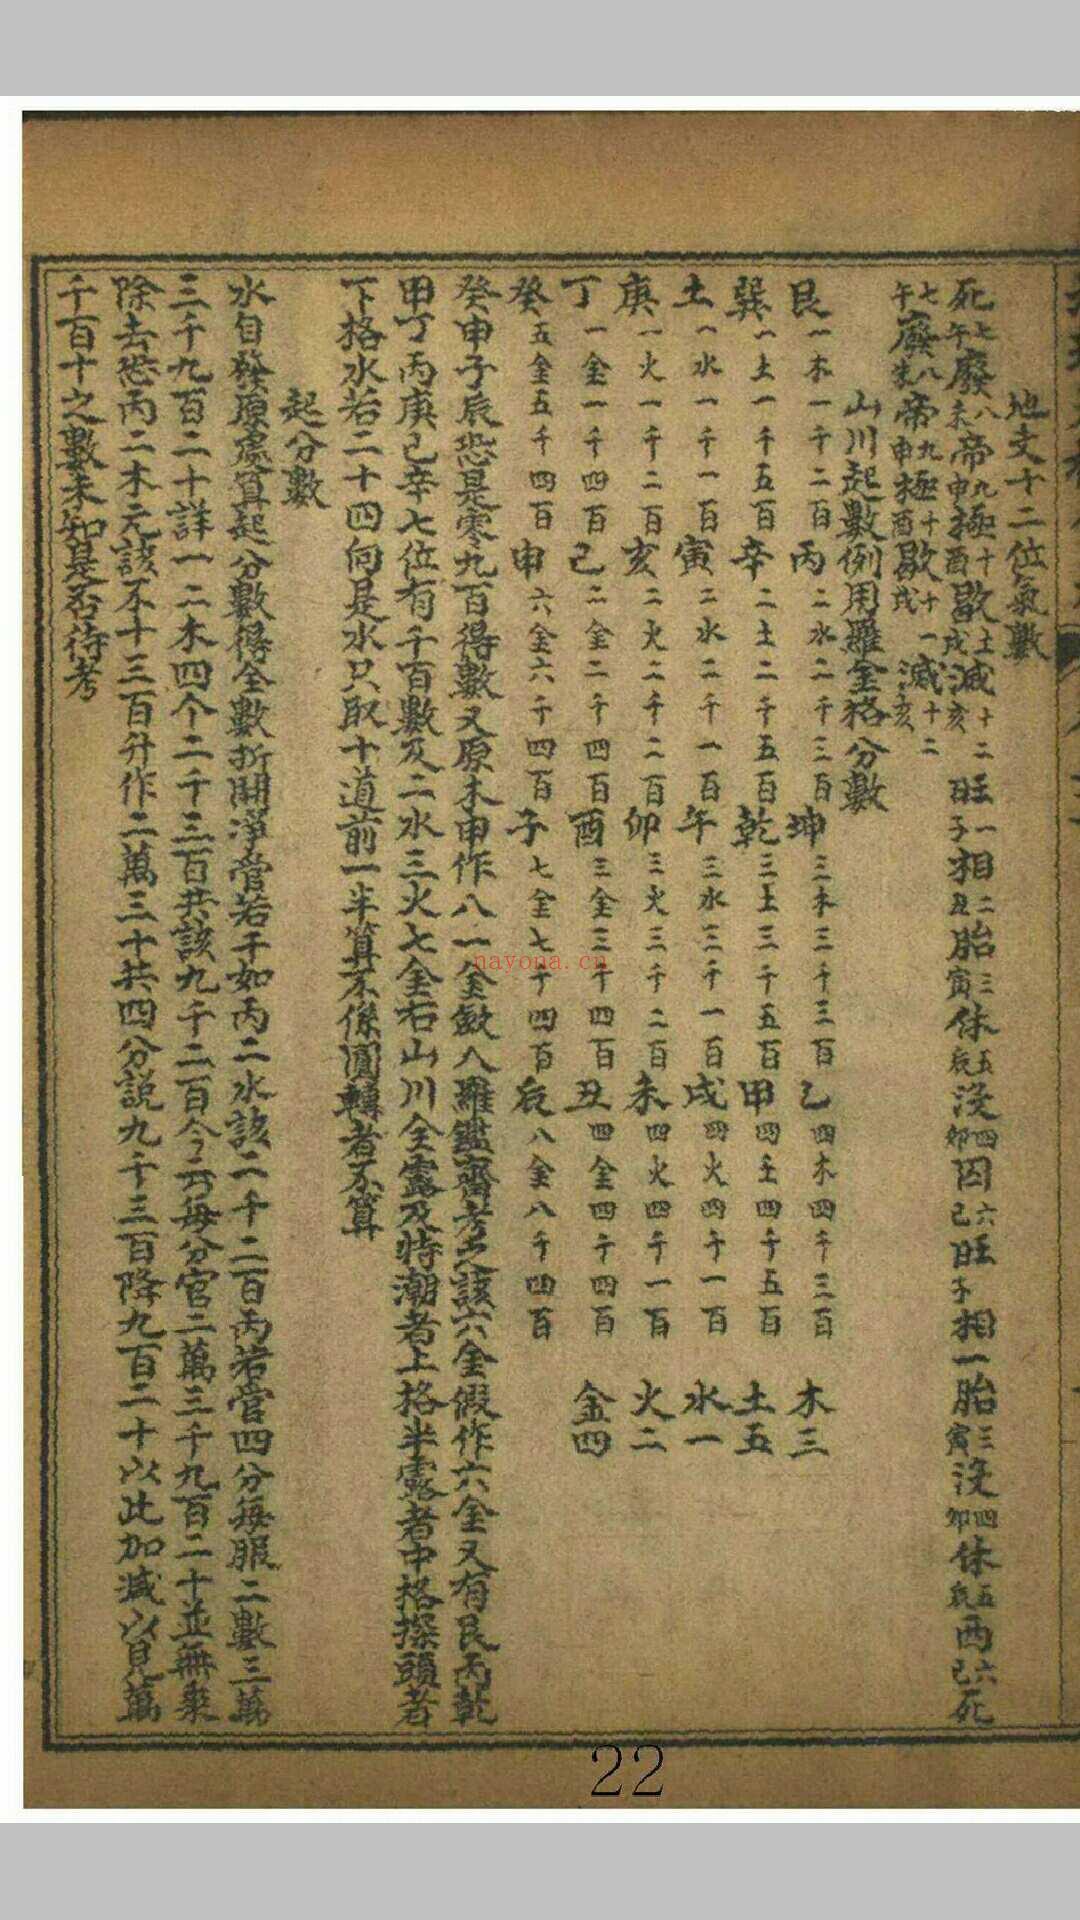 地支十二位氣數
旺一子相二丑胎三寅休五辰沒四卯囚六己旺子相一胎三寅沒四卯休五辰酉六己死
死七午廢八未帝九申極十酉歇土戌減十二亥
七午廢八未帝九申極十酉歇十一戌減十二亥
山川起數例用羅金格分數
艮一木一千二百 丙二水二千三百 坤三木三千三百 乙四木四千三百 木三
巽一土一千五百 辛二土二千五百 乾三土三千五百 甲四土四千五百 土五
土一水一千一百 寅二水二千一百 午三水三千一百 戌四火四千一百 水一
庚一火一千二百 亥二火二千二百 卯三火三千二百 未四火四千一百 火二
丁一金一千四百 己二金二千四百 酉三金三千四百 丑四金四千四百 金四
癸五金五千四百 申六金六千四百 子七金七千四百 辰八金八千四百
癸申子辰恐是零九百得數又原本申作八一金數八羅鑑齋考之該六金假作六金又有艮丙乾
甲丁丙庚己辛七位有千百數及二水三火七金右山川全露及特潮者上格半露者中格探頭者
下格水若二十四向是水只取十道前一半算不係圓轉者不算
起分數
水自發原處算起分數得全數折開淨管若干如丙二水該二千二百丙若管四分每服二數三萬
三千九百二十詳一二木四个二千三百共該九千二百今云每分官二萬三千九百二十並無乘
除去恐丙二木元該不十三百升作二萬三十共四分說九千三百降九百二十以此加減以見萬
千百十之數未知是否待考
22
nayona.cn